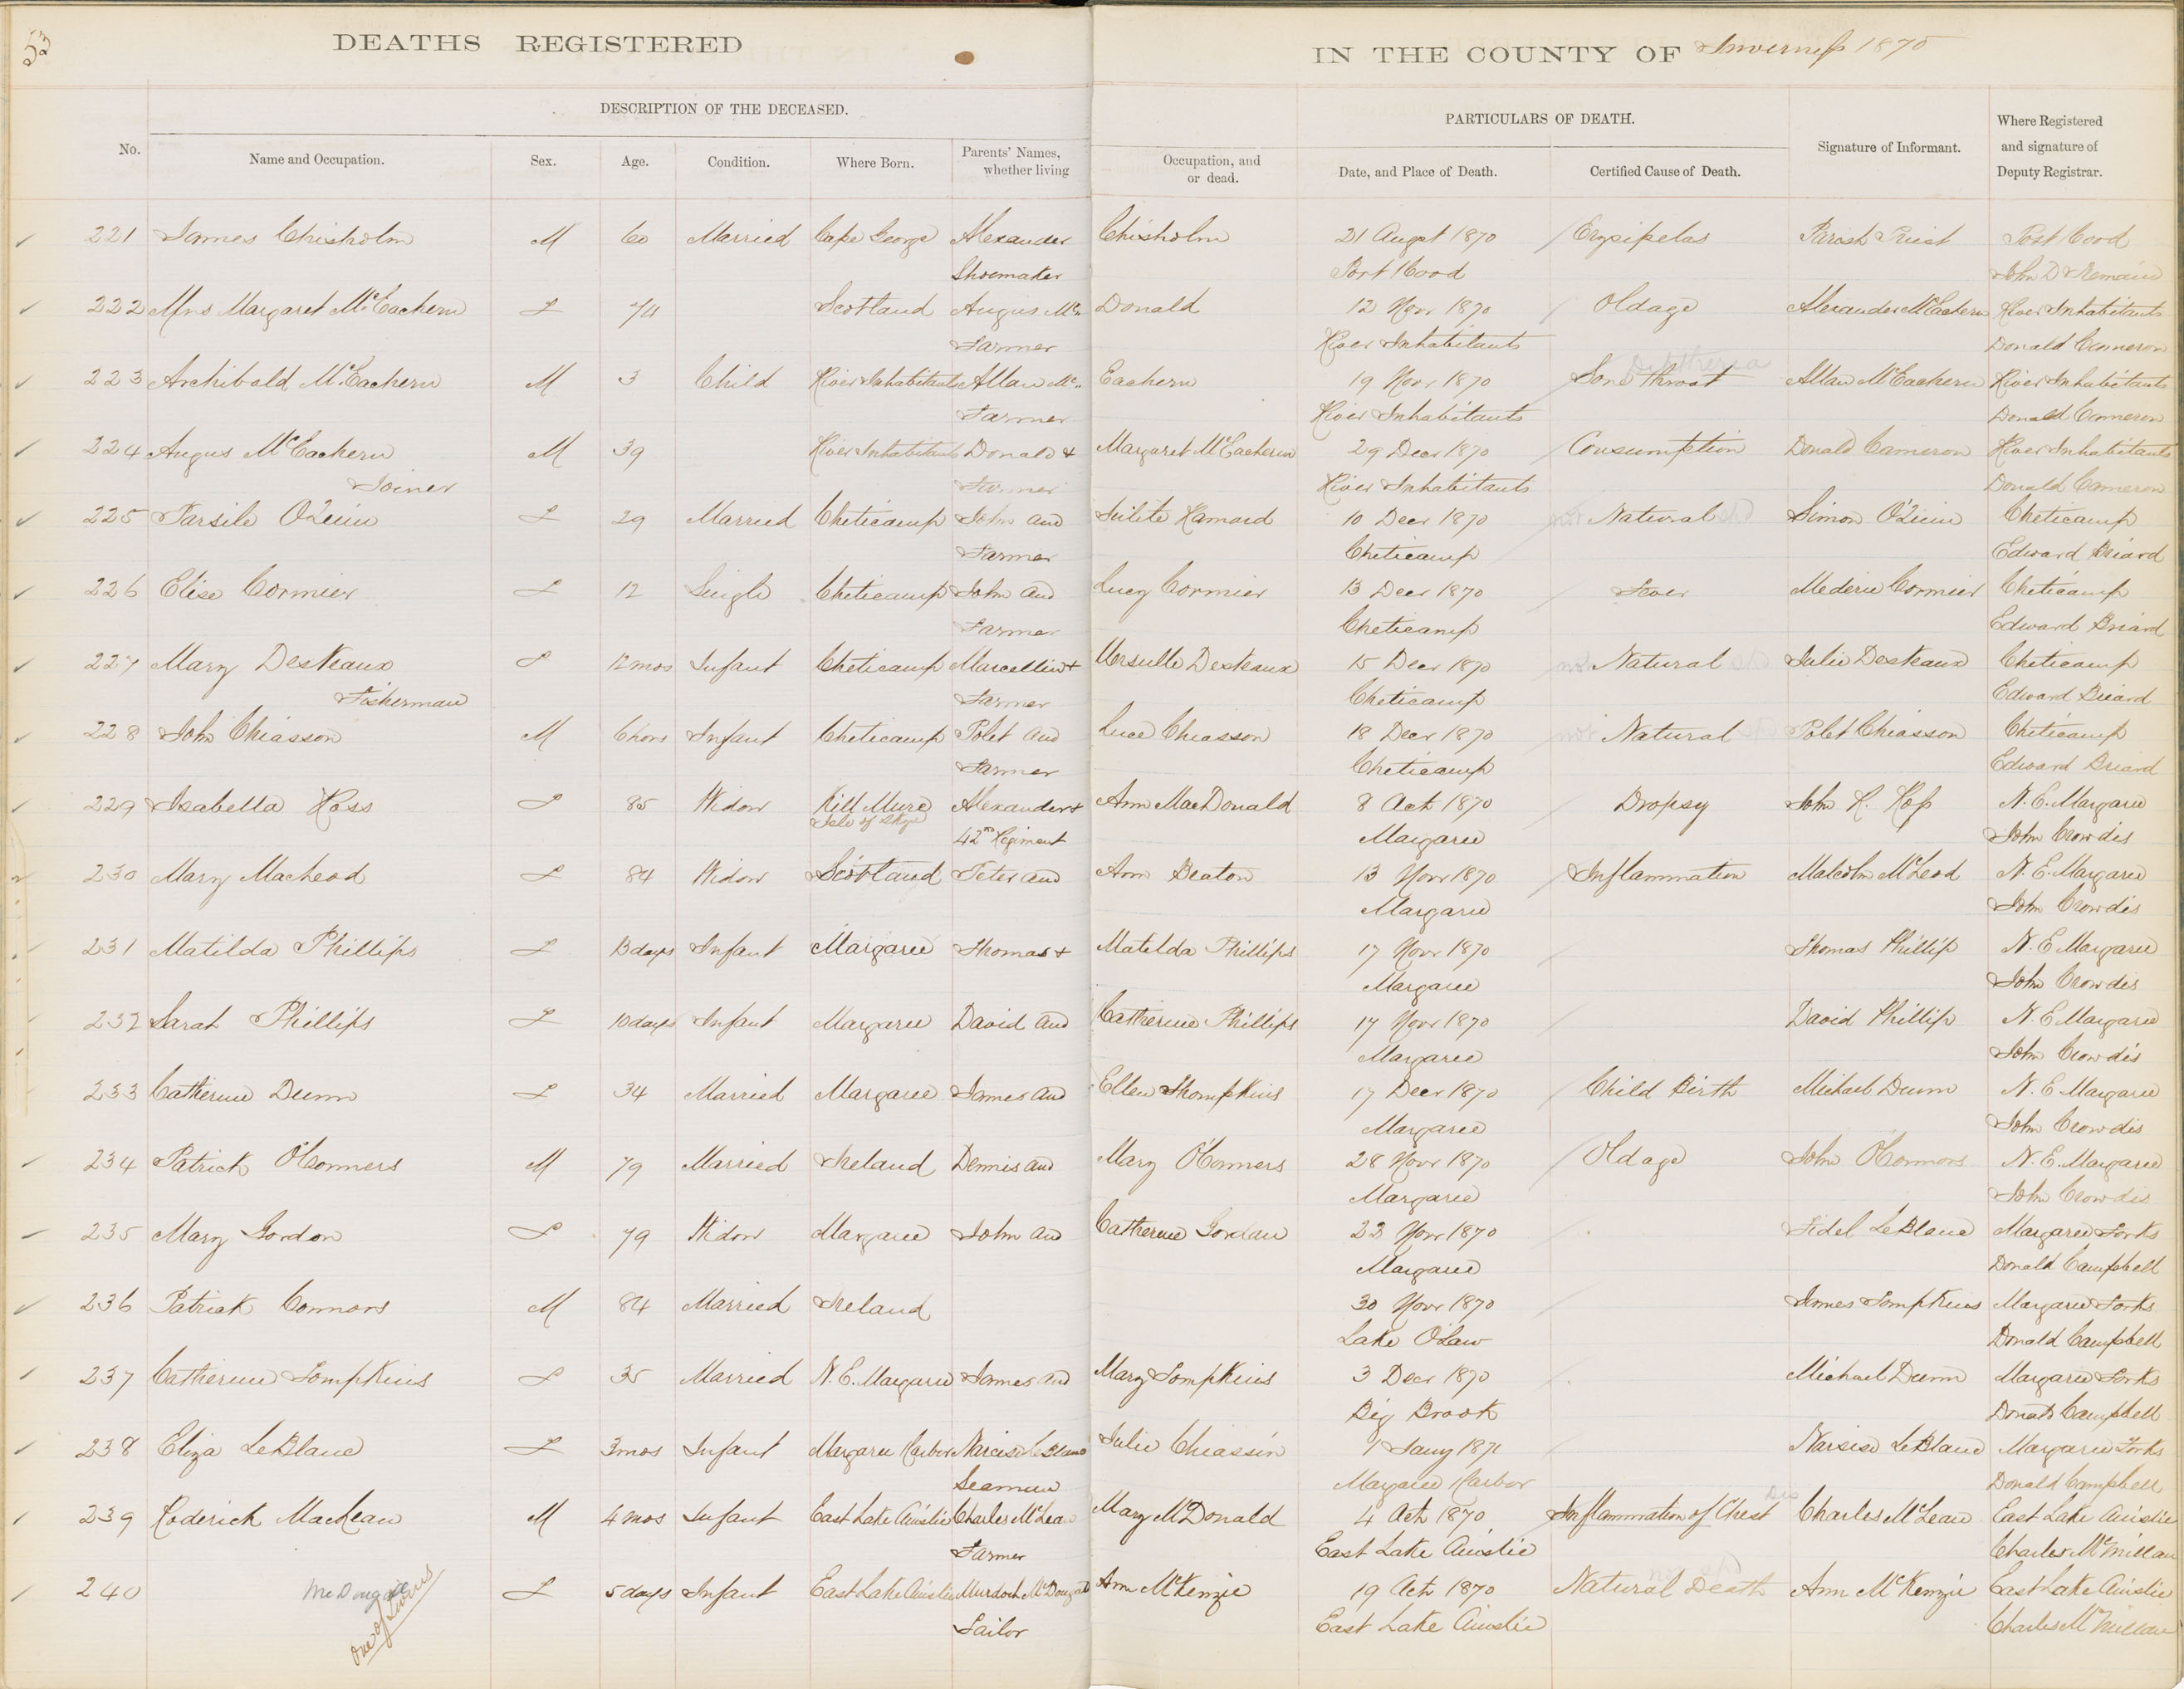 53
DEATHS REGISTERED IN THE COUNTY OF Inverness 1870
DESCRIPTION OF THE DECEASED. PARTICULARS OF DEATH.
No. Name and Occupation. Sex. Age. Condition. Where Born. Parents' Names, whether living Occupation, and or dead. Date, and Place of Death. Certified Cause of Death. Signature of Informant. Where Registered and signature of Deputy Registrar.
221 James Chisholm M 60 Married Cape George Alexander Chisholm 21 Augst 1870 Erysipelas Parish Priest Port Hood
Shoemaker Port Hood John D Tremain
222 Mrs Margaret McEachern F 74 Scotland Angus Mc Donald 12 Novr 1870 Old age Alexander McEachern River Inhabitants
Farmer River Inhabitants Donald Cameron
223 Archibald McEachern M 3 Child River Inhabitants Allan Mc Eachern 19 Novr 1870 Sore throat Diptheria Allan McEachern River Inhabitants
Farmer River Inhabitants Donald Cameron
224 Angus McEachern M 39 River Inhabitants Donald & Margaret McEachern 29 Decr 1870 Consumption Donald Cameron River Inhabitants
Joiner Farmer River Inhabitants Donald Cameron
225 Tarsile O'Quin F 29 Married Cheticamp John and Julite Hamard 10 Decr 1870 not Natural Simon O'Quin Cheticamp
Farmer Cheticamp Edward Briard
226 Elise Cormier F 12 Single Cheticamp John and Lucy Cormier 13 Decr 1870 Fever Mederic Cormier Cheticamp
Farmer Cheticamp Edward Briard
227 Mary Desveaux F 12 mos Infant Cheticamp Marcellin & Ursulle Desveaux 15 Decr 1870 not Natural Julie Desveaux Cheticamp
Fisherman Farmer Cheticamp Edward Briard
228 John Chiasson M 6 hors Infant Cheticamp Polet and Luce Chiasson 18 Decr 1870 not Natural Polet Chiasson Cheticamp
Farmer Cheticamp Edward Briard
229 Isabella Ross F 85 Widow Kill Mure Alexander & Ann MacDonald 8 Oct 1870 Dropsy John R. Ross N. E. Margaree
Isle of Skye 42nd Regiment Margaree John Crowdis
230 Mary MacLeod F 84 Widow Scotland Peter and Ann Beaton 13 Novr 1870 Inflammation Malcolm McLeod N. E. Margaree
Margaree John Crowdis
231 Matilda Phillips F 13 days Infant Margaree Thomas & Matilda Phillips 17 Novr 1870 Thomas Phillip N. E Margaree
Margaree John Crowdis
232 Sarah Phillips F 10 days Infant Margaree David and Catherine Phillips 17 Novr 1870 David Phillip N. E Margaree
Margaree John Crowdis
233 Catherine Dunn F 34 Married Margaree James and Ellen Thompkins 17 Decr 1870 Child Birth Michael Dunn N. E Margaree
Margaree John Crowdis
234 Patrick O'Conners M 79 Married Ireland Dennis and Mary O'Conners 28 Novr 1870 Old age John O'Connors N. E. Margaree
Margaree John Crowdis
235 Mary Gordon F 79 Widow Margaree John and Catherine Gordan 23 Novr 1870 Fidel LeBlanc Margaree Forks
Margaree Donald Campbell
236 Patrick Connors M 84 Married Ireland 30 Novr 1870 James Tompkins Margaree Forks
Lake O'Law Donald Campbell
237 Catherine Tompkins F 35 Married N. E. Margaree James and Mary Tompkins 3 Decr 1870 Michael Dunn Margaree Forks
Big Brook Donald Campbell
238 Eliza LeBlanc F 3 mos Infant Margaree Harbor Narcise LeBlanc Julie Chiassin 1 Jany 1871 Narsise LeBlanc Margaree Forks
Seaman Margaree Harbor Donald Campbell
239 Roderick MacLean M 4 mos Infant East Lake Ainslie Charles McLean Mary McDonald 4 Oct 1870 Inflammation of Chest Dis Charles McLean East Lake Ainslie
Farmer East Lake Ainslie Charles McMillan
240 McDougall F 5 days Infant East Lake Ainslie Murdoch McDougald Ann McKenzie 19 Oct 1870 Natural Death Ann McKenzie East Lake Ainslie
One of twins Sailor East Lake Ainslie Charles McMillan